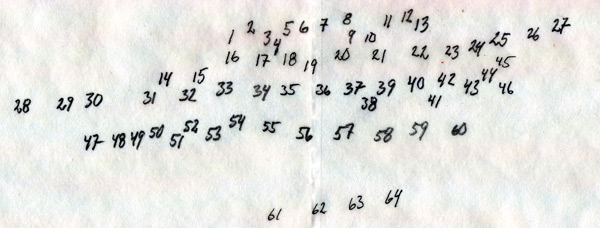 1 2 3 4 5 6 7 8 9 10 11 12 13
14 15 16 17 18 19 20 21 22 23 24 25 26 27
28 29 30 31 32 33 34 35 36 37 38 39 40 41 42 43 44 45 46
47 48 49 50 51 52 53 54 55 56 57 58 59 60
61 62 63 64